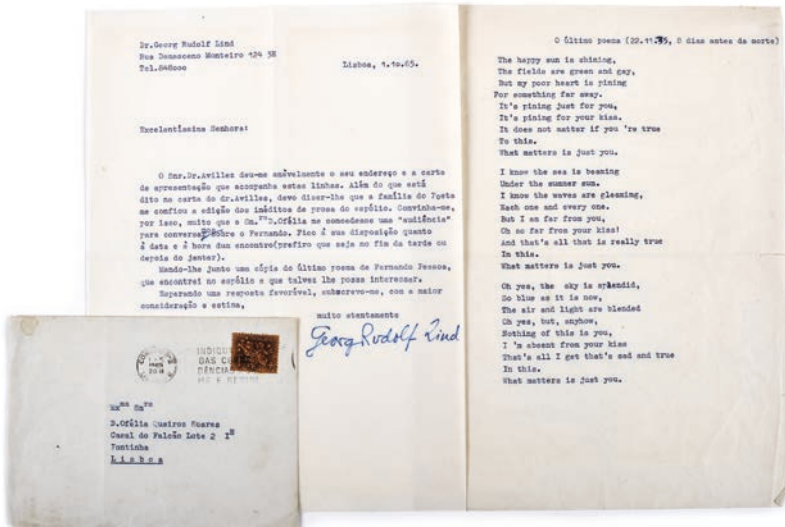 Dr.Georg Rudolf Lind
Rua Damasceno Monteiro 124 3E
Tel.848000
Lisboa, 1.10.65.
Excelentíssima Senhora:
O Snr.Dr.Avillez deu-me amàvelmente o seu endereço e a carta
de apresentação que acompanha estas linhas. Além do que está
dito na carta do dr.Avillez, devo dizer-lhe que a família do Poeta
me confiou a edição dos inéditos de prosa do espólio. Convinha-me,
por isso, muito que a Sn.ra D.Ofélia me concedesse uma "audiência"
para conversarmos sobre o Fernando. Fico à sua disposição quanto
à data e à hora dum encontro(prefiro que seja no fim da tarde ou
depois do jantar).
Mando-lhe junto uma cópia do último poema de Fernando Pessoa,
que encontrei no espólio e que talvez lhe possa interessar.
Esperando uma resposta favorável, subscrevo-me, com a maior
consideração e estima,
muito atentamente
Georg Rudolf Lind
O último poema (22.11.35, 8 dias antes da morte)
The happy sun is shining,
The fields are green and gay,
But my poor heart is pining
For something far away.
It's pining just for you,
It's pining for your kiss.
It does not matter if you 're true
To this.
What matters is just you.
I know the sea is beaming
Under the summer sun.
I know the waves are gleaming,
Each one and every one.
But I am far from you,
Oh so far from your kiss!
And that's all that is really true
In this.
What matters is just you.
Oh yes, the sky is splendid,
So blue as it is now,
The air and light are blended
Oh yes, but, anyhow,
Nothing of this is you,
I 'm absent from your kiss
That's all I get that's sad and true
In this.
What matters is just you.
1965
INDIQUE
DAS
Exma Snra
D.Ofélia Queiroz Soares
Casal do Falcão Lote 2 1º
Pontinha
Lisboa